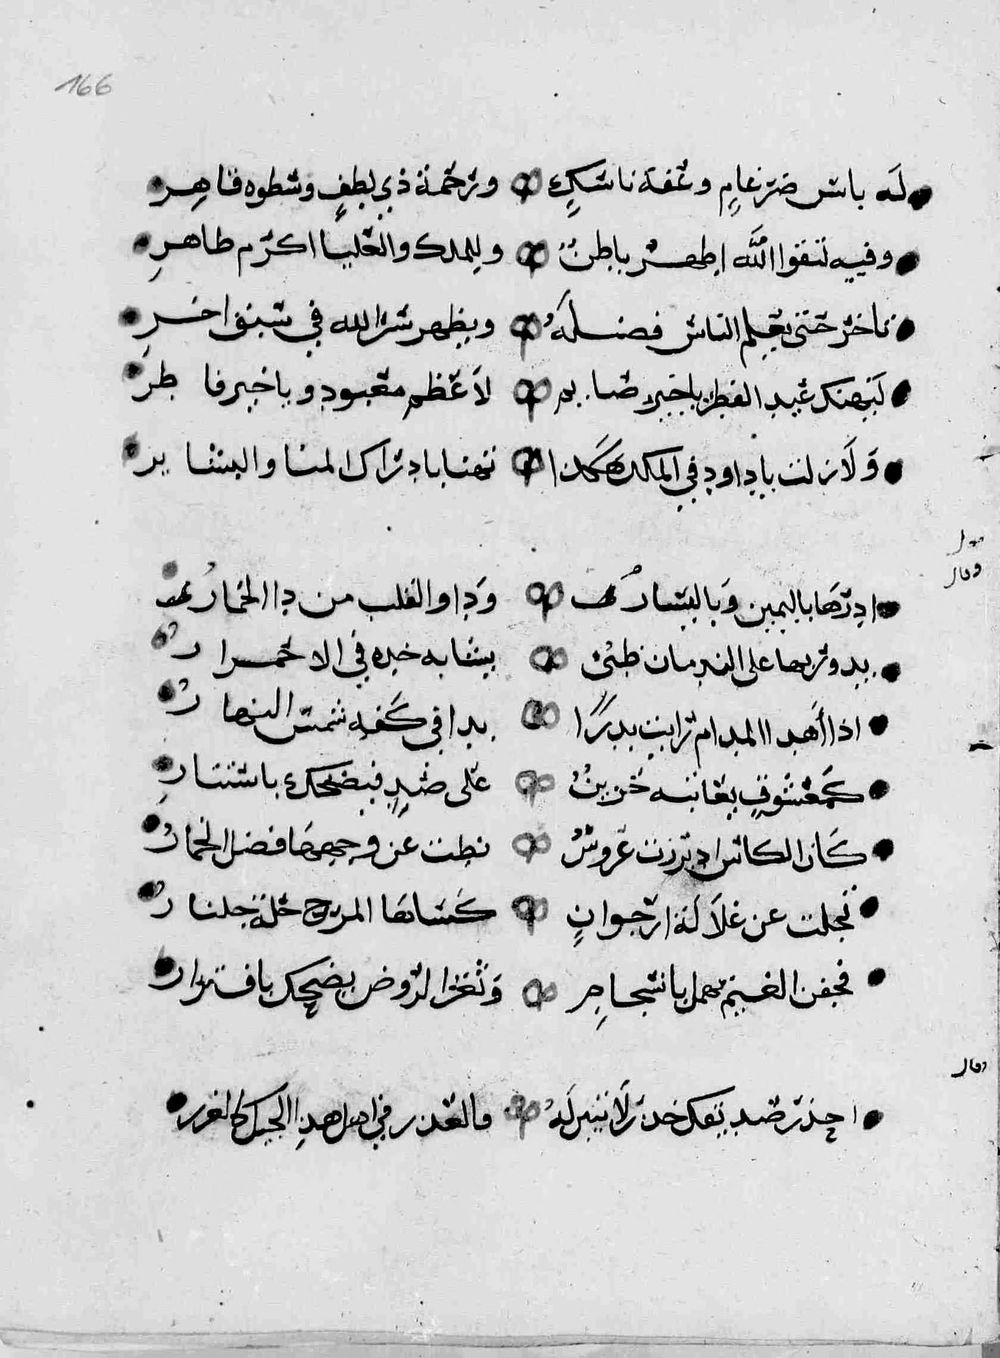 166
له باس ضرغام وعفة ناسك ورحمة ذي لطف وسطوه قاهر
وفيه لتقوا الله اظهر باطن وللملك والعليا اكرم طاهر
تاخر حتى يعلم الناس فضله ويظهر سر الله في سبق اخر
ليهنك عيد الفطر ياخير صايم لاعظم معبود وياخير فاطر
ولا زلت ياداود في الملك هكذا تهنا بادراك المنا والبشاير
وقال
ادرها باليمين وباليسار وداو القلب من دا الخمار
يدور بها على الندمان ظبي يشابه خده في الاحمرار
اذا اهدا المدام رايت بدرا بدا في كفه شمس النهار
كمعشوق يعانقه حزين على ضد فيضحك باستتار
كان الكاس اذ برزت عروس نطت عن وجهها فضل الخمار
تجلت عن غلالة ارجوان كساها المزج حلة جلنار
فجفن الغيم همل بانسجام وثغر الروض يضحك بافترار
وقال
احذر صديقك حذرا لا تبن له فالغدر في اهل هذا الجيل كالغرر